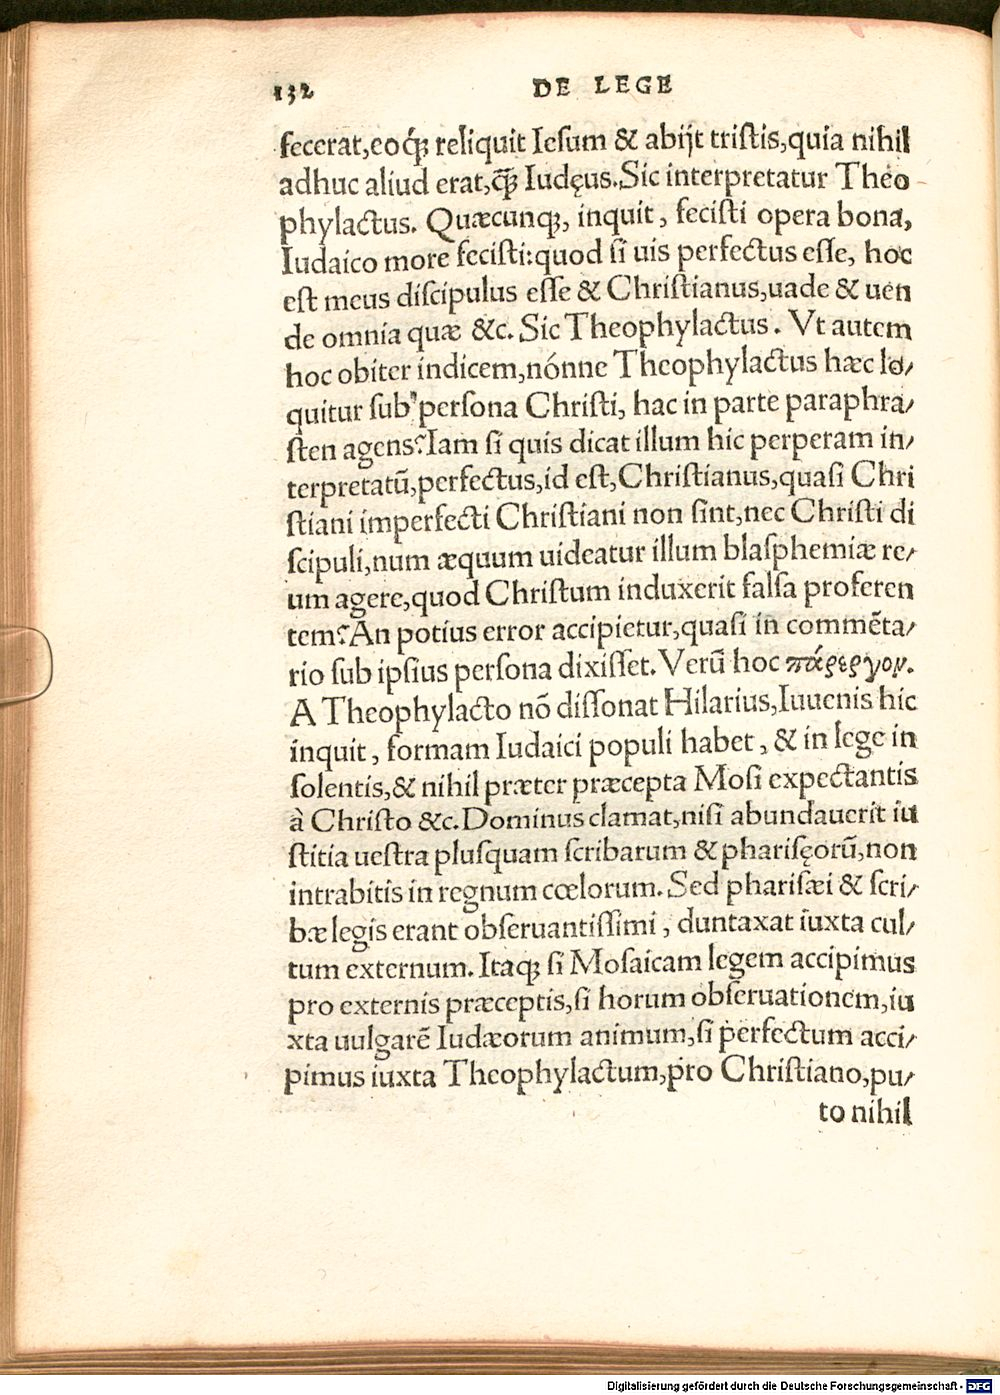 132 DE LEGE
fecerat,eoq́ꝫ reliquit Iesum & abijt tristis,quia nihil
adhuc aliud erat,q̃ꝫ Iudęus.Sic interpretatur Theo
phylactus. Quæcunqꝫ, inquit, fecisti opera bona,
Iudaico more fecisti:quod si uis perfectus esse, hoc
est meus discipulus esse & Christianus,uade & uen
de omnia quæ &c. Sic Theophylactus. Vt autem
hoc obiter indicem,nónne Theophylactus hæc lo/
quitur sub persona Christi, hac in parte paraphra/
sten agens?Iam si quis dicat illum hic perperam in/
terpretatũ,perfectus,id est,Christianus,quasi Chri
stiani imperfecti Christiani non sint,nec Christi di
scipuli,num æquum uideatur illum blasphemiæ re/
um agere,quod Christum induxerit falsa proferen
tem?An potius error accipietur,quasi in commẽta/
rio sub ipsius persona dixisset. Verũ hoc πάρεργον.
A Theophylacto nõ dissonat Hilarius,Iuuenis hic
inquit, formam Iudaici populi habet, & in lege in
solentis,& nihil præter præcepta Mosi expectantis
à Christo &c.Dominus clamat,nisi abundauerit iu
stitia uestra plusquam scribarum & pharisęorũ,non
intrabitis in regnum cœlorum. Sed pharisæi & scri/
bæ legis erant obseruantissimi, duntaxat iuxta cul/
tum externum. Itaqꝫ si Mosaicam legem accipimus
pro externis præceptis,si horum obseruationem,iu
xta uulgarẽ Iudæorum animum,si perfectum acci/
pimus iuxta Theophylactum,pro Christiano,pu/
to nihil
Digitalisierung gefördert durch die Deutsche Forschungsgemeinschaft - DFG